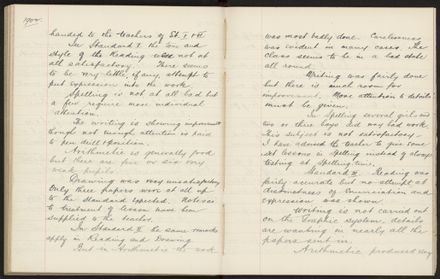 1902
handed to the teachers of St. I & II.
In Standard I the tone and
style of the Reading were not at
all satisfactory. There seems
to be very little, if any, attempt to
put expression into the work.
Spelling is not at all bad but
a few require more individual
attention.
The writing is showing improvement
though not enough attention is paid
to pen drill & position.
Arithmetic is generally good
but there are five or six very
weak pupils.
Drawing was very unsatisfactory
Only three papers were at all up
to the standard expected. Notes as
to treatment of lesson have been
supplied to the teacher.
In Standard II the same remarks
apply in Reading and Drawing.
But in Arithmetic the work
was most badly done. Carelessness
was evident in many cases. The
class seems to be in a bad state
all round.
Writing was fairly done
but there is much room for
improvement. More attention to details
must be given.
In Spelling several girls and
two or three boys did very bad work.
This subject is not satisfactory.
I have advised the teacher to give some
set lessons in Spelling instead of always
testing at Spelling time.
Standard III. Reading was
fairly accurate but no attempt at
distinctness of enunciation and
expression was shown.
Writing is not carried out
on the system, details
are wanting in nearly all the
papers sent in.
Arithmetic produced very